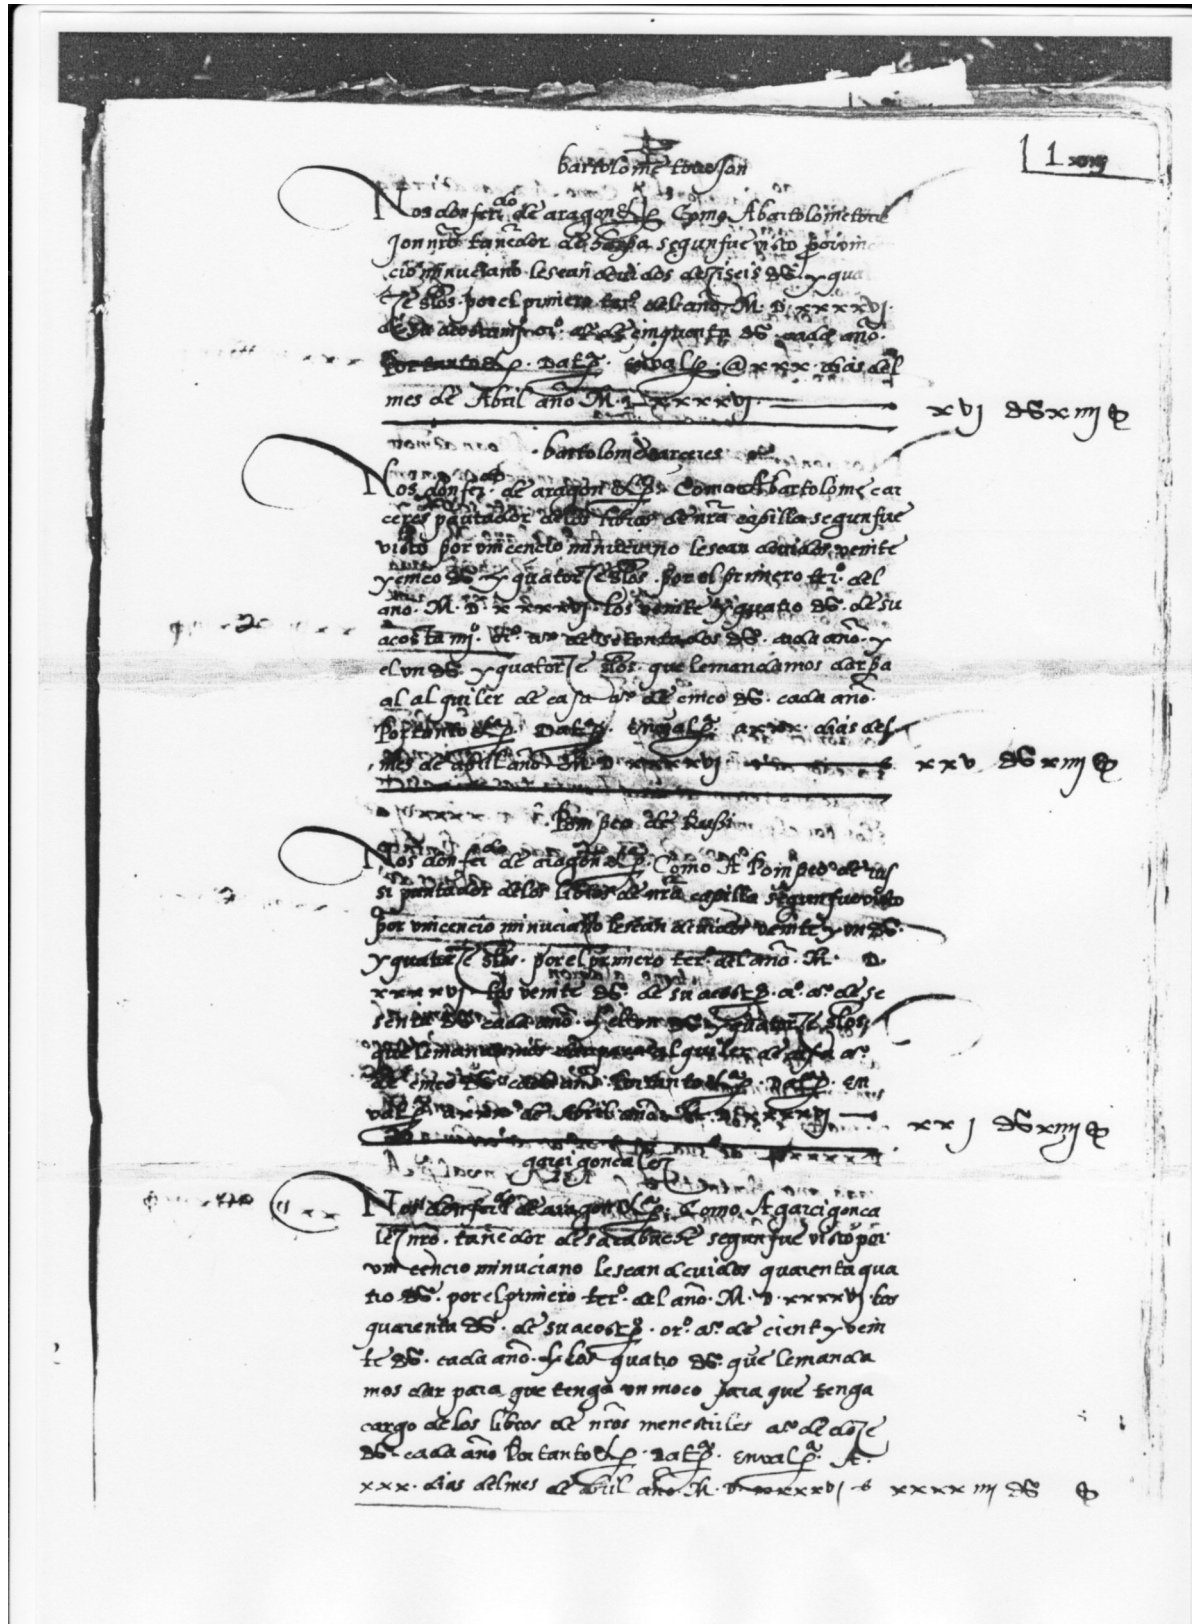 bartolome torrejon
Nos don fer.do de aragon &c. Como A bartolome torre
jon nr̃o tañedor de harpa segun fue visto por vin
cio minuciano le sean deuidos deziseis ds. y qua
ze slos. por el primero ter.o del año. M. D. xxxxvj.
de su acostami.o a r.o de cinquenta ds. cada año.
Por tanto &c. Datp. en val.a @ xxx. dias del
mes de Abril año M. D. xxxxvj.
xvj ds xiiij
bartolome carceres
Nos don fer.do de aragon &c. Como A bartolome car
ceres pautador de los libros de nr̃a capilla segun fue
visto por vincencio minuciano le sean deuidos veinte
y cinco ds. y quatorze slos. por el primero ter.o del
año. M. D. xxxxvj. los veinte y quatro ds. de su
acostami.o a r.o de setenta dos ds. cada año. y
el vn ds. y quatorze slos. que le mandamos dar pa
al alquiler de casa a r.o de cinco ds. cada año.
Por tanto &c. Datp. en val.a a xxx. dias del
mes de abril año M. D. xxxxvj
xxv ds xiiij
Pompeo de russi
Nos don fer.do de aragon &c. Como A Pompeo de rus
si pautador de los libros de nr̃a capilla segun fue visto
por vincencio minuciano le sean deuidos veinte y vn ds.
y quatorze slos. por el primero ter.o del año. M. D.
xxxxvj. los veinte ds. de su acost.o a r.o de se
senta ds. cada año. y el vn ds. y quatorze slos
que le mandamos dar para alquiler de casa a r.o
de cinco ds. cada año. Por tanto &c. Datp. en
val.a a xxx. de Abril año M. D. xxxxvj
xxj ds xiiij
garci goncalez
Nos don fer.do de aragon &c. Como A garci gonca
lez nr̃o. tañedor de sacabuche segun fue visto por
vincencio minuciano le sean deuidos quarenta qua
tro ds. por el primero ter.o del año. M. D. xxxxvj los
quarenta ds. de su acost.o a r.o de cient y vein
te ds. cada año. y los quatro ds. que le manda
mos dar para que tenga vn moco para que tenga
cargo de los libros de nr̃os menestriles a r.o de doze
ds. cada año Por tanto &c. Datp. en val.a A.
xxx. dias del mes de abril año. M. D. xxxxvj xxxxiiij ds